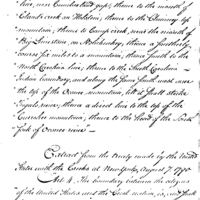 line, near Cumberland gap; thence to the mouth of
Cloud's creek on Holstein; thence to the Chimney top
mountain; thence to Camp creek, near the mouth of
Big Limestone, on Nolichuckey; thence a southerly
course six miles to a mountain; thence South to the
North Carolina line; thence to the South Carolina
Indian boundary, and along the same South west over
the top of the Oconee mountain, till it shall strike
Tugalo river; thence a direct line to the top of the
Currohee mountain; thence to the head of the South
fork of Oconee river
Extract from the treaty made by the United
States with the Creeks at New York, August 7, 1790
Art. 4. The boundary between the citizens
of the United States and the Creek nation, is, and shall